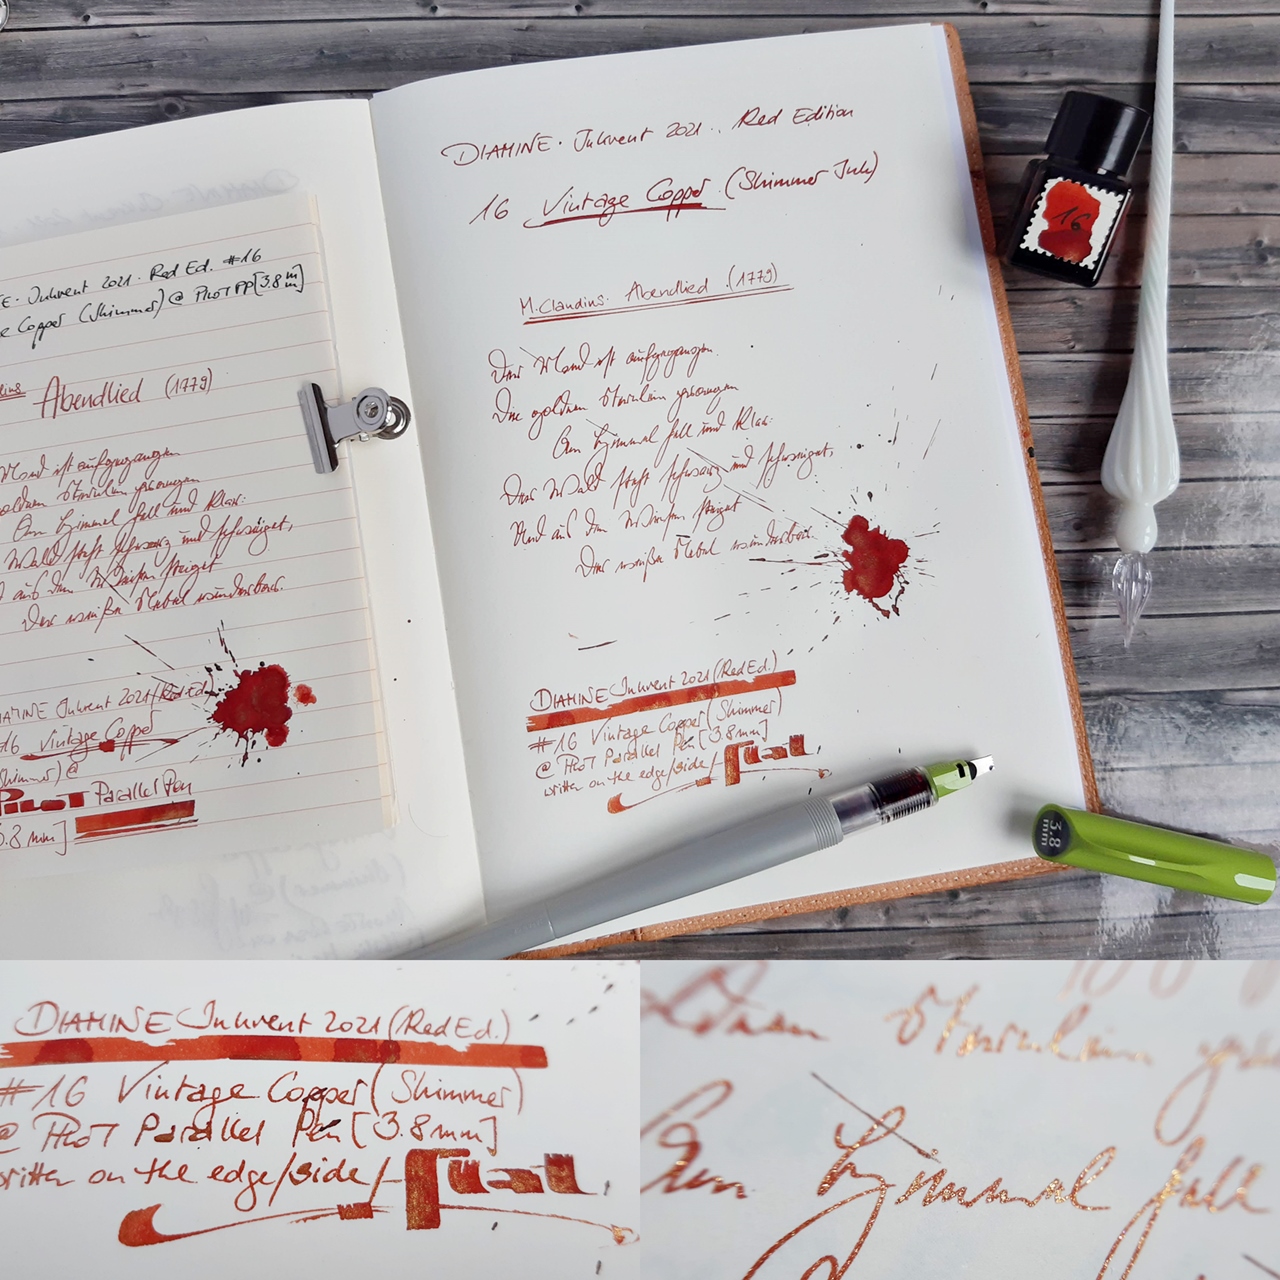 TE · Inkvent 2021 · Red Ed. #16
e Copper (Shimmer) @ PILOT PP [3.8 m]
dius Abendlied (1779)
Mond ist aufgegangen
oldnen Sternlein prangen
Am Himmel hell und klar:
Wald steht schwarz und schweiget,
d aus den Wiesen steiget
Der weiße Nebel wunderbar.
IAMINE Inkvent 2021 (Red Ed.)
16 Vintage Copper
Shimmer) @
PILOT Parallel Pen
3.8 mm]
DIAMINE · Inkvent 2021 · Red Edition
16 Vintage Copper (Shimmer Ink)
M. Claudius · Abendlied (1779)
Der Mond ist aufgegangen
Die goldnen Sternlein prangen
Am Himmel hell und klar:
Der Wald steht schwarz und schweiget,
Und aus den Wiesen steiget
Der weiße Nebel wunderbar.
DIAMINE Inkvent 2021 (Red Ed.)
#16 Vintage Copper (Shimmer)
@ PILOT Parallel Pen [3.8mm]
written on the edge/side/flat
16
3.8
mm
DIAMINE Inkvent 2021 (Red Ed.)
#16 Vintage Copper (Shimmer)
@ PILOT Parallel Pen [3.8mm]
written on the edge/side/flat
oldnen Sternlein pra
Am Himmel hell